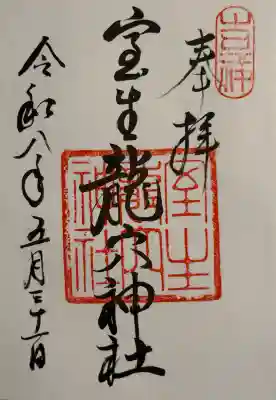 奉拝
室生龍穴神社
令和八年五月三十一日
室生
龍穴
神社